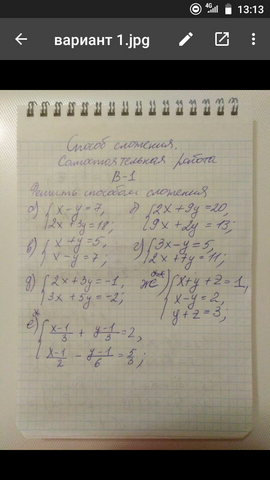 4G 13:13
вариант 1.jpg
Способ сложения.
Самостоятельная работа
В-1
Решить способом сложения
а) { x-y=7, 2x+3y=18; б) { 2x+9y=20, 9x+2y=13;
в) { x+y=5, x-y=7; г) { 3x-y=5, 2x+7y=11;
д) { 2x+3y=-1, 3x+5y=-2; ж) { x+y+z=1, x-y=2, y+z=3;
е*) { x-1/3 + y-1/3 = 2, x-1/2 - y-1/6 = 5/3;